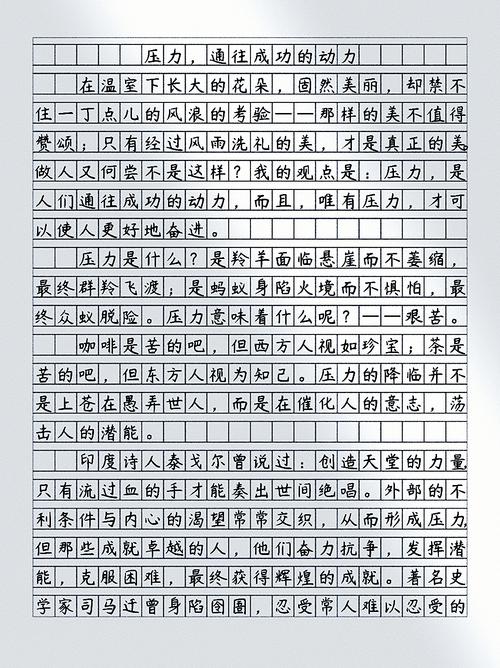 压力，通往成功的动力
在温室下长大的花朵，固然美丽，却禁不
住一丁点儿的风浪的考验——那样的美不值得
赞颂；只有经过风雨洗礼的美，才是真正的美。
做人又何尝不是这样？我的观点是：压力，是
人们通往成功的动力，而且，唯有压力，才可
以使人更好地奋进。
压力是什么？是羚羊面临悬崖而不萎缩，
最终群羚飞渡；是蚂蚁身陷火境而不惧怕，最
终众蚁脱险。压力意味着什么呢？——艰苦。
咖啡是苦的吧，但西方人视如珍宝；茶是
苦的吧，但东方人视为知己。压力的降临并不
是上苍在愚弄世人，而是在催化人的意志，荡
击人的潜能。
印度诗人泰戈尔曾说过：创造天堂的力量，
只有流过血的手才能奏出世间绝唱。外部的不
利条件与内心的渴望常常交织，从而形成压力，
但那些成就卓越的人，他们奋力抗争，发挥潜
能，克服困难，最终获得辉煌的成就。著名史
学家司马迁曾身陷囹圄，忍受常人难以忍受的